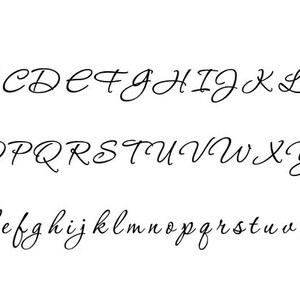 CDEFGHIJKL
OPQRSTUVWXY
efghijklmnopqrstuv